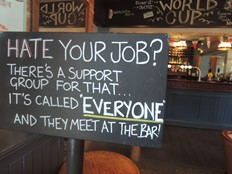 WORLD CUP
WORLD CUP
HATE YOUR JOB?
THERE'S A SUPPORT
GROUP FOR THAT...
IT'S CALLED "EVERYONE"
AND THEY MEET AT THE BAR!